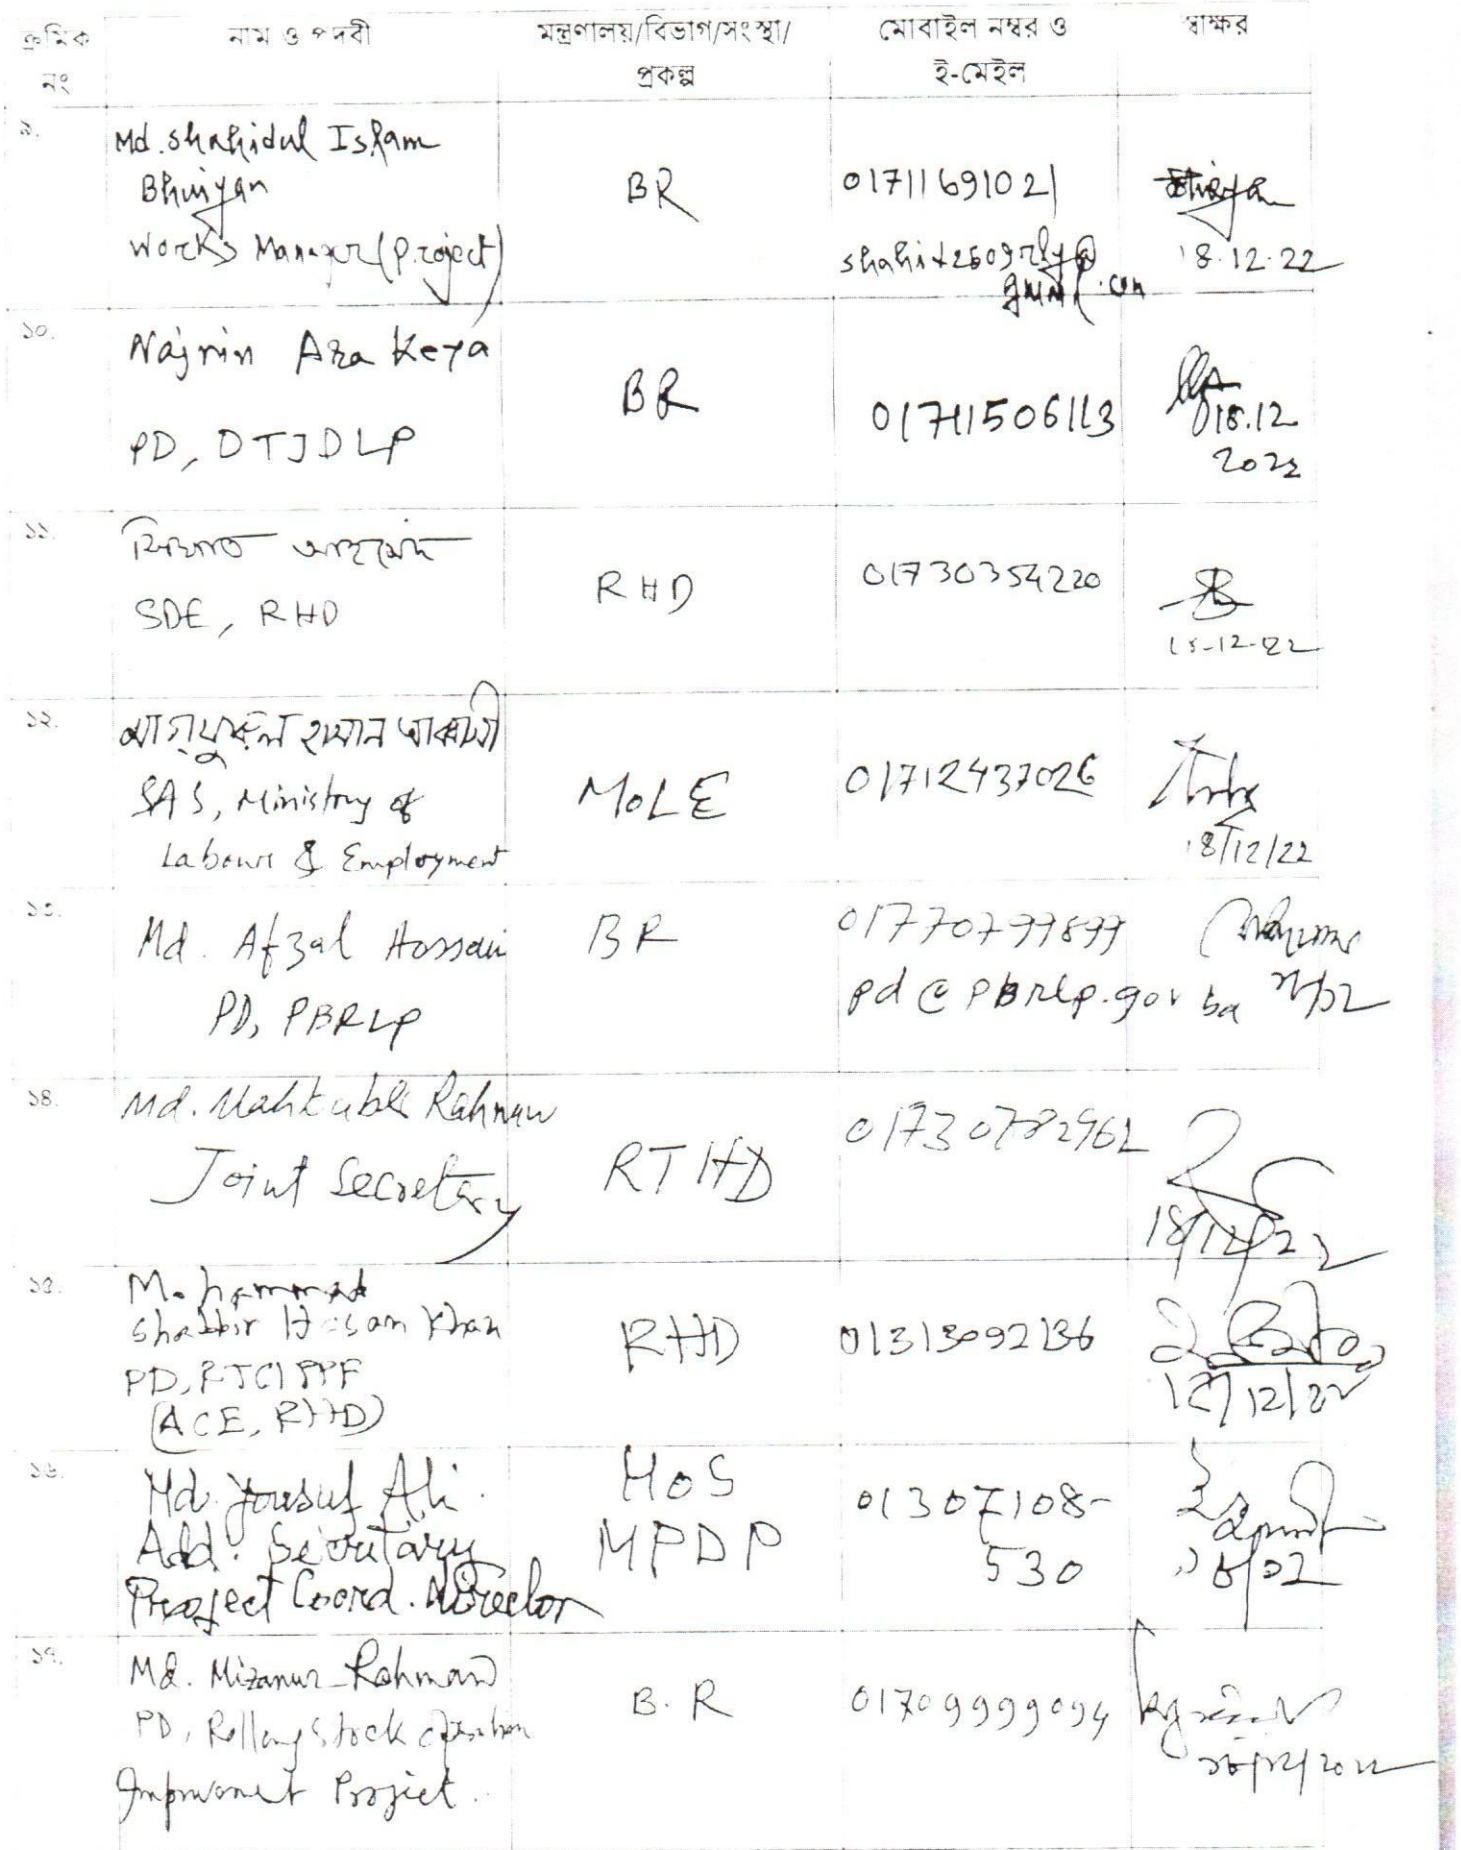 ক্রমিক নং
নাম ও পদবী
মন্ত্রণালয়/বিভাগ/সংস্থা/
প্রকল্প
মোবাইল নম্বর ও
ই-মেইল
স্বাক্ষর
৯.
Md. Shahidul Islam
Bhuiyan
Works Manager (Project)
BR
01711691021
18.12.22
১০.
Najnin Ara Keya
PD, DTJDLP
BR
01711506113
18.12
2022
১১.
SDE, RHD
RHD
01730354220
18-12-22
১২.
SAS, Ministry of
Labour & Employment
MoLE
01712437026
18/12/22
১৩.
Md. Afzal Hossain
PD, PBRLP
BR
pd@pbrlp.gov
১৪.
Md. Rahman
Joint Secretary
RTHD
01730782962
18/12/22
১৫.
Mohammad
Shabbir Hasan Khan
PD,
(ACE, RHD)
RHD
01313092136
18/12/22
১৬.
Md. Yousuf Ali
Add. Secretary
Project Coord. Director
MoS
MPDP
01307108-
530
১৭.
Md. Mizanur Rahman
PD, Rolling Stock Operation
Improvment Project.
B.R
01709999094